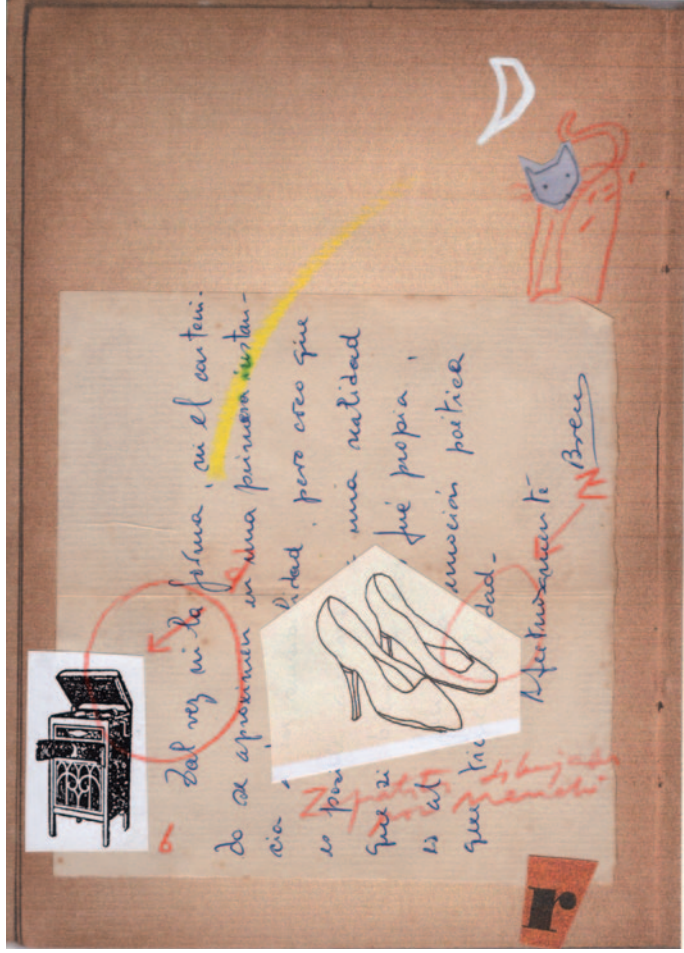 Tal vez ni la forma, ni el conteni-
do se aproximen en una primera instan-
cia, lidad, pero creo que
es una realidad
que si fué propia,
es al emoción poética
que dad.
Afectuosamente
Breu
Zapatos dibujados
por
r